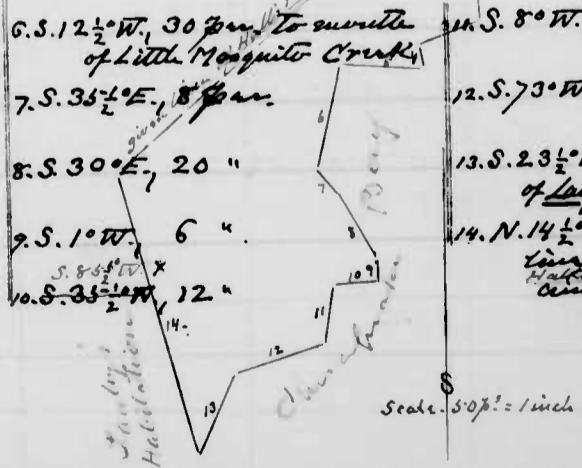 6. S. 12½° W., 30 per. to mouth
of Little Mosquito Creek,
7. S. 35½° E., 8 per.
8. S. 30° E., 20 "
9. S. 1° W., 6 "
S. 85½° W. x
10. S. 35½° W., 12 "
11. S. 8° W.
12. S. 73° W
13. S. 23½°
of
14. N. 14½°
line
given
6
7
8
9
10
11
12
13
14
Bay
Habitation
S
Scale - 50 p. = 1 inch